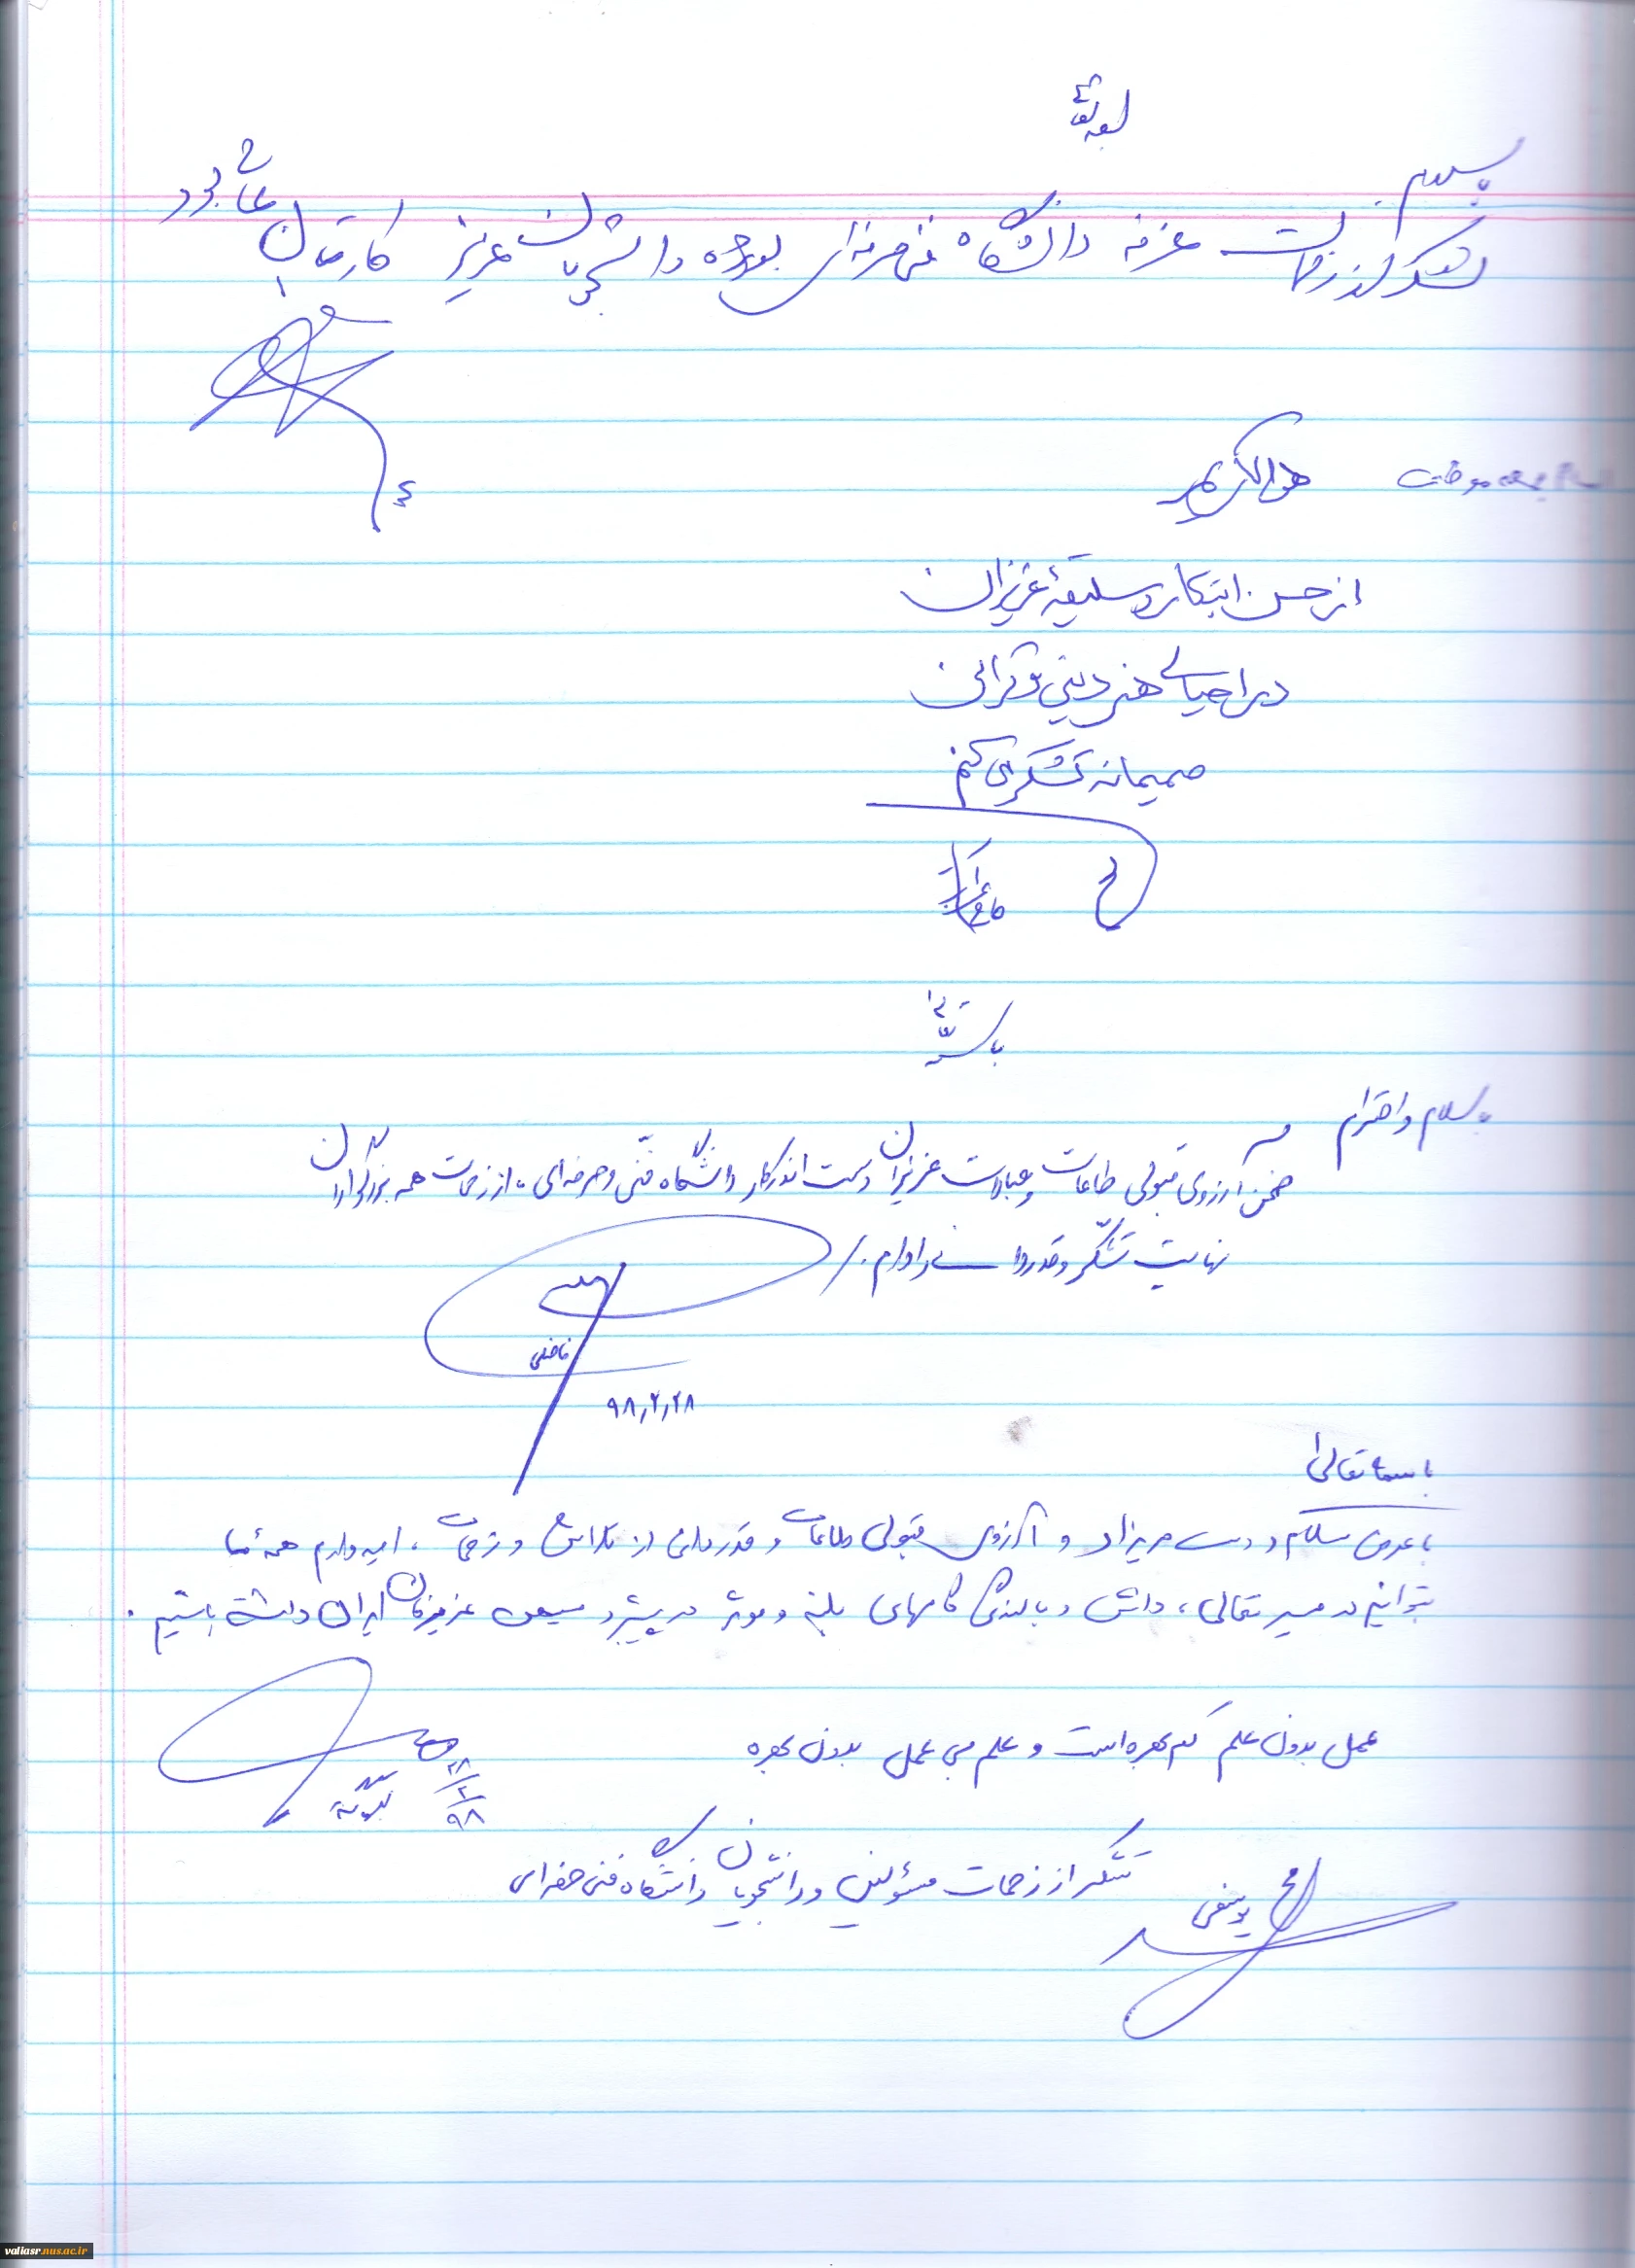 بسمه تعالی
با سلام
تشکر از زحمات غرفه دانشگاه فنی حرفه‌ای بویژه دانشجویان عزیز کارتان عالی بود
هوالکریم
از حسن ابتکار و سلیقهٔ عزیزان
در احیای هنر دینی و قرآنی
صمیمانه تشکر می کنم
باسمه تعالی
با سلام و احترام
ضمن آرزوی قبولی طاعات و عبادات عزیزان دست اندرکار دانشگاه فنی و حرفه‌ای، از زحمات همه بزرگواران
نهایت تشکر و قدردانی را دارم.
فاضلی
۹۸,۲,۲۸
باسمه تعالی
با عرض سلام و و آرزوی قبولی طاعات و قدردانی از تلاش و زحمات، امیدوارم همه ما
بتوانیم در مسیر تعالی، دانش و بالندگی گامهای بلند و موثر در پیشبرد میهن عزیزمان ایران داشته باشیم.
عمل بدون علم کم بهره است و علم بی عمل بدون بهره
۲۸/۲/۹۸
تشکر از زحمات مسئولین و دانشجویان دانشگاه فنی حرفه‌ای
یوسفی
valiasr.nus.ac.ir